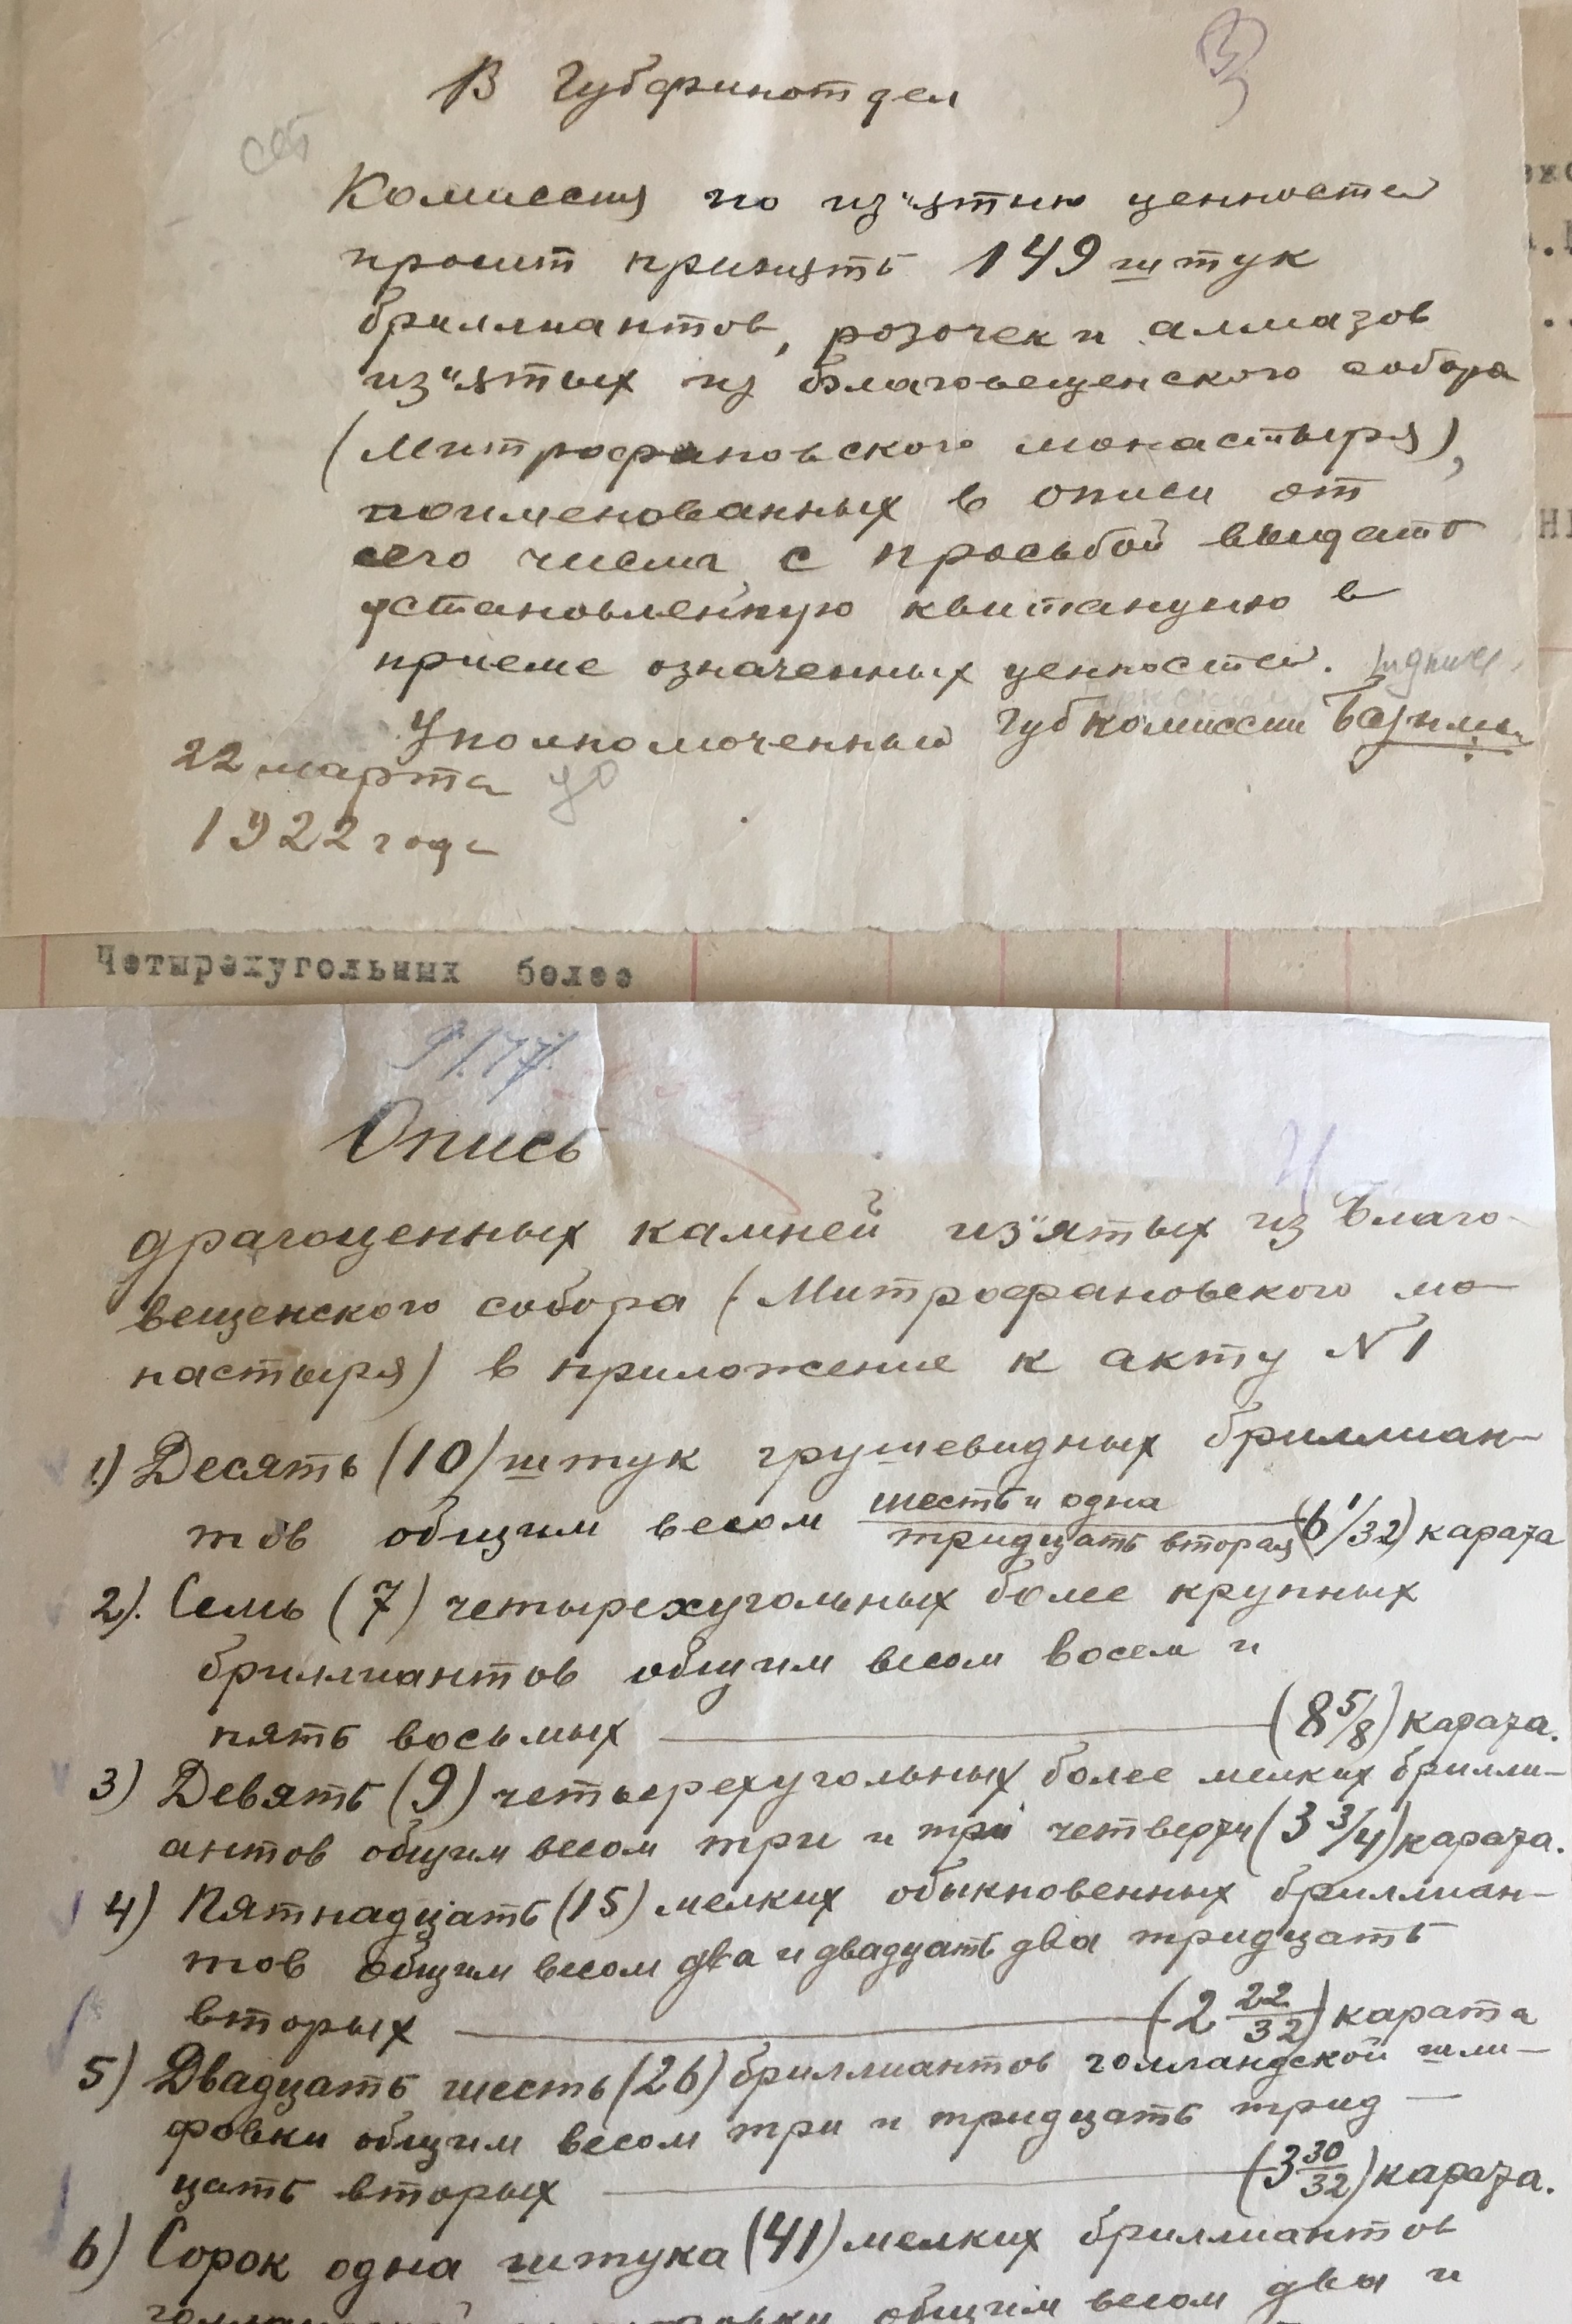 В Губфинотдел
Комиссия по из"ятию ценностей
просит принять 149 штук
бриллиантов, розочек и алмазов
из"ятых из Благовещенского собора
(Митрофановского монастыря),
поименованных в описи от
сего числа с просьбой выдать
установленную квитанцию в
приеме означенных ценностей.
Уполномоченный Губкомиссии
22 марта
1922 года
Четырехугольных более
Опись
драгоценных камней из"ятых из Благо-
вещенского собора (Митрофановского мо-
настыря) в приложение к акту N 1
1) Десять (10) штук грушевидных бриллиан-
тов общим весом шесть и одна
тридцать вторая (6 1/32) карата
2). Семь (7) четырехугольных более крупных
бриллиантов общим весом восем и
пять восьмых (8 5/8) карата.
3) Девять (9) четырехугольных более мелких брилли-
антов общим весом три и три четверти (3 3/4) карата.
4) Пятнадцать (15) мелких обыкновенных бриллиан-
тов общим весом два и двадцать два тридцать
вторых (2 22/32) карата
5) Двадцать шесть (26) бриллиантов голландской шли-
фовки общим весом три и тридцать трид-
цать вторых (3 30/32) карата.
6) Сорок одна штука (41) мелких бриллиантов
общим весом два и